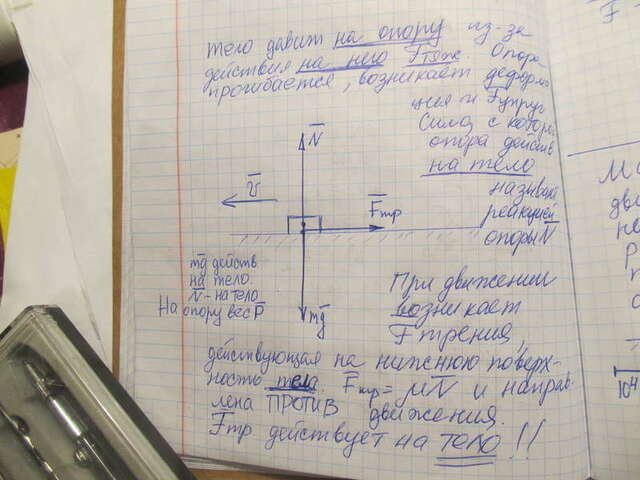 тело давит на опору из-за
действия на него Fтяж. Опора
прогибается, возникает деформа
ция и Fупруг
Сила, с которой
опора действ
на тело
называе
реакцией
опоры N
N
v
Fтр
mg
mg действ.
на тело.
N - на тело
На опору вес P
При движении
возникает
Fтрения,
действующая на нижнюю поверх-
ность тела. Fтр = μN и направ-
лена ПРОТИВ движения.
Fтр действует на ТЕЛО!!
F
10⁴